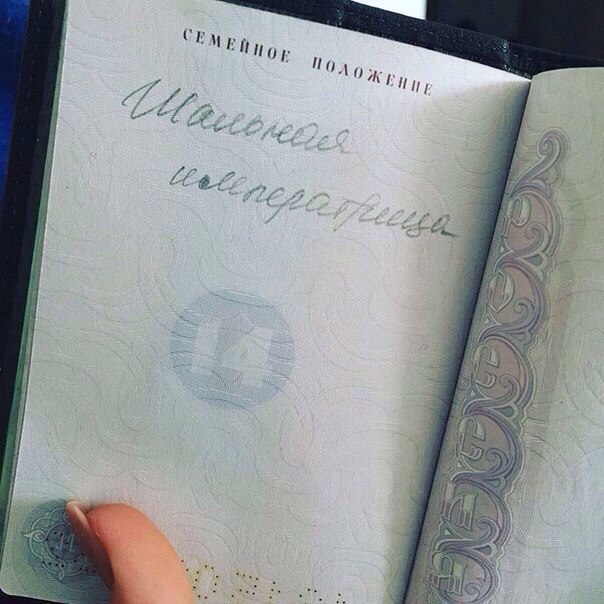 СЕМЕЙНОЕ ПОЛОЖЕНИЕ
Шальная
императрица
14
14